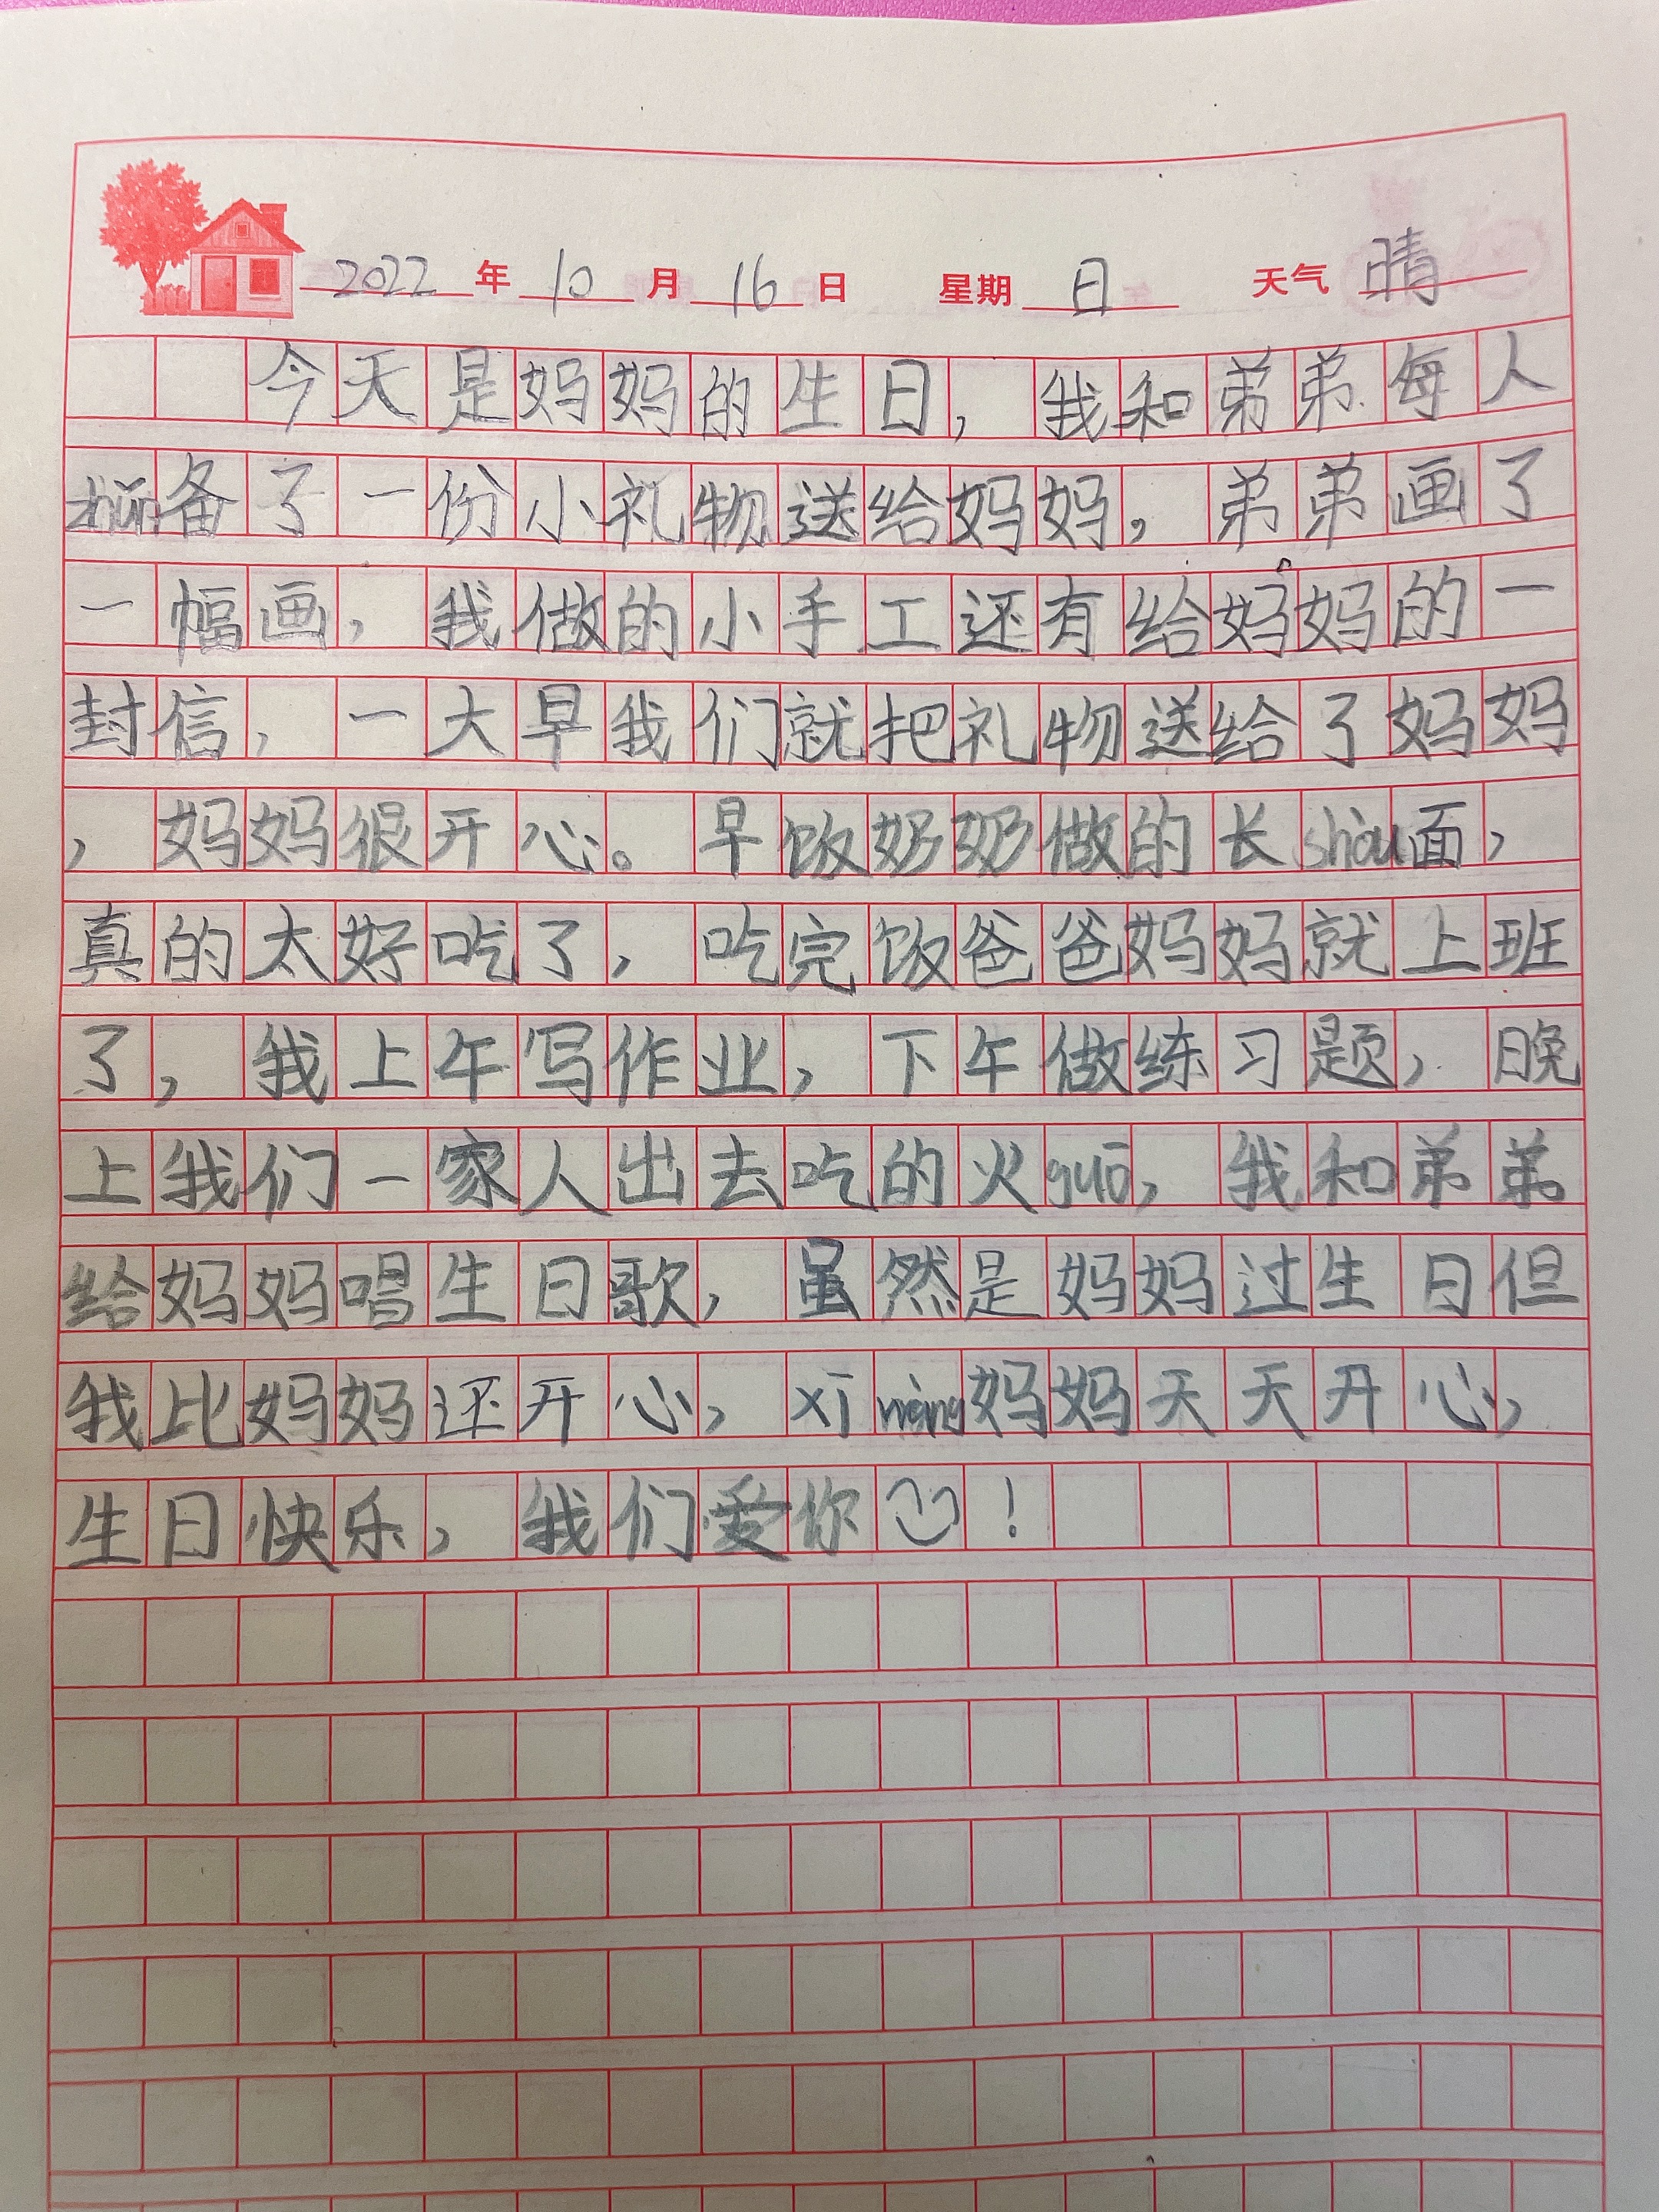 2022年10月16日 星期日 天气晴
今天是妈妈的生日，我和弟弟每人
zhǔn备了一份小礼物送给妈妈，弟弟画了
一幅画，我做的小手工还有给妈妈的一
封信，一大早我们就把礼物送给了妈妈
，妈妈很开心。早饭奶奶做的长shòu面，
真的太好吃了，吃完饭爸爸妈妈就上班
了，我上午写作业，下午做练习题，晚
上我们一家人出去吃的火guō，我和弟弟
给妈妈唱生日歌，虽然是妈妈过生日但
我比妈妈还开心，xī wàng妈妈天天开心，
生日快乐，我们爱你！